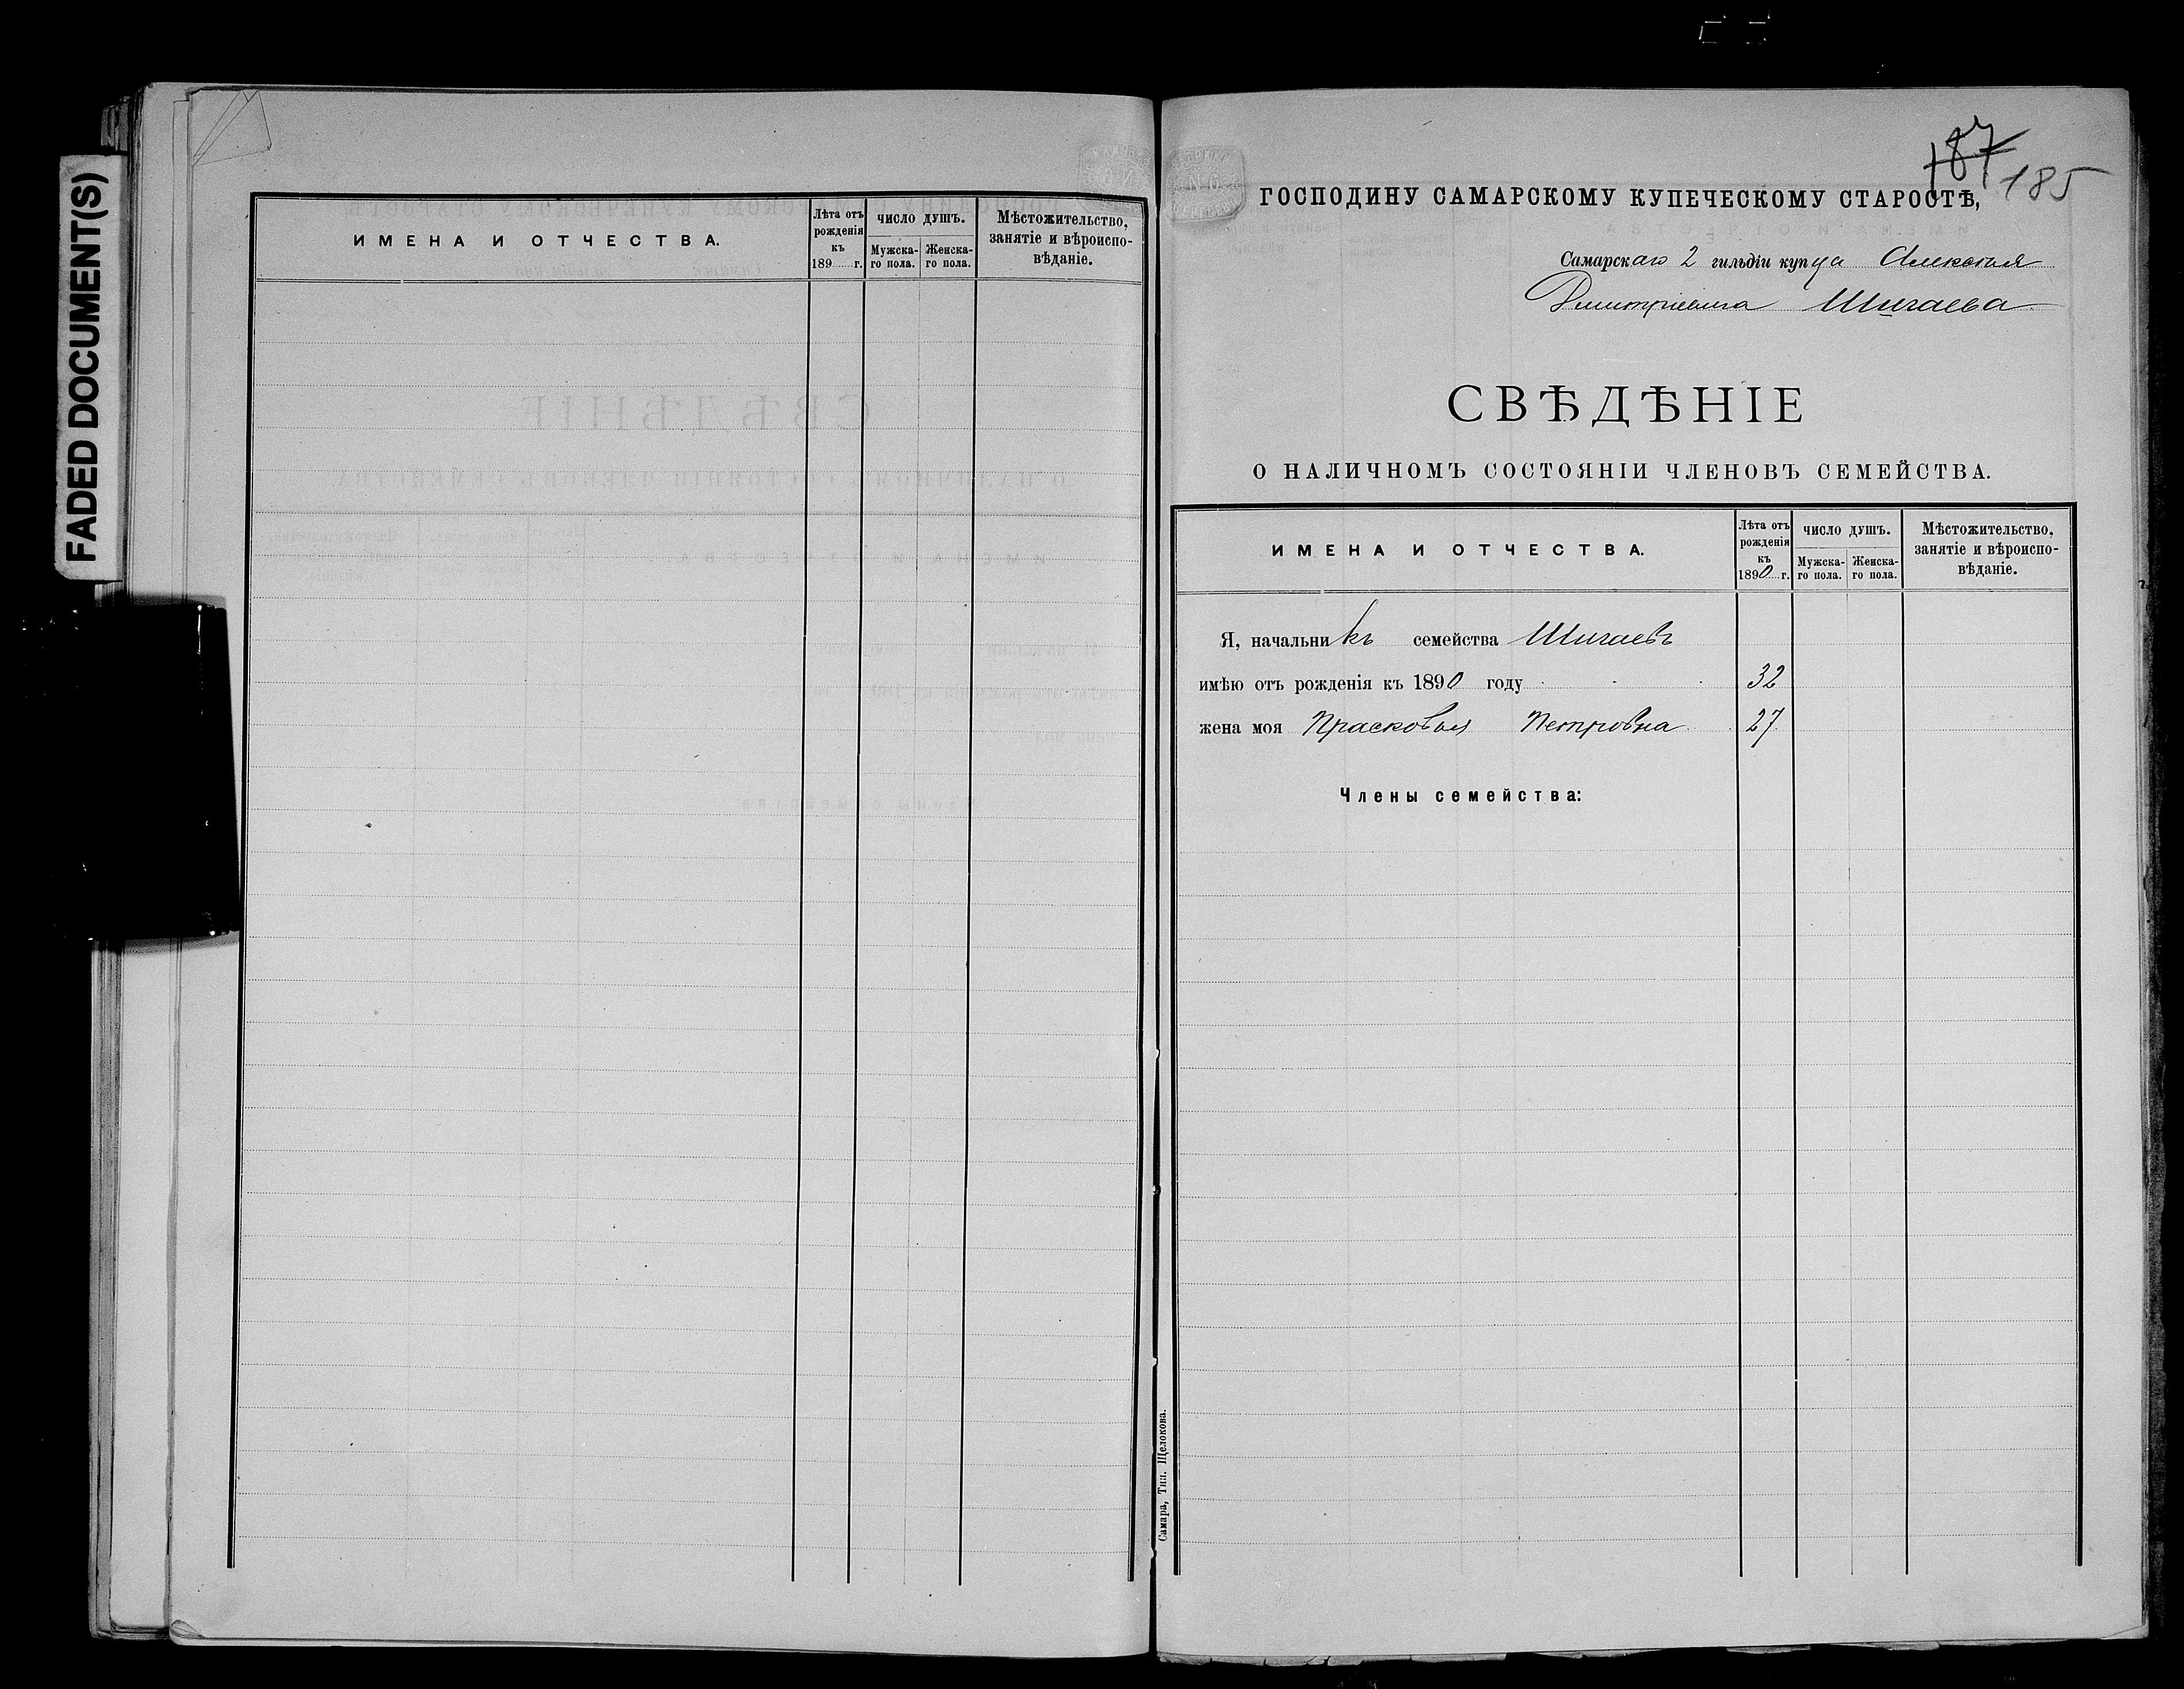 FADED DOCUMENT(S)
ИМЕНА И ОТЧЕСТВА.
Лѣта отъ рожденія къ 189 г.
ЧИСЛО ДУШЪ.
Мужска-го пола.
Женска-го пола.
Мѣстожительство, занятіе и вѣроиспо-вѣданіе.
187
185
ГОСПОДИНУ САМАРСКОМУ КУПЕЧЕСКОМУ СТАРОСТѢ,
Самарскаго 2 гильдіи купца Алексѣя
Дмитріевича Шигаева
СВѢДѢНІЕ
О НАЛИЧНОМЪ СОСТОЯНІИ ЧЛЕНОВЪ СЕМЕЙСТВА.
ИМЕНА И ОТЧЕСТВА.
Лѣта отъ рожденія къ 1890 г.
ЧИСЛО ДУШЪ.
Мужска-го пола.
Женска-го пола.
Мѣстожительство, занятіе и вѣроиспо-вѣданіе.
Я, начальникъ семейства Шигаевъ
имѣю отъ рожденія къ 1890 году 32
жена моя Прасковья Петровна 27
Члены семейства:
Самара, Тип. Щелокова.